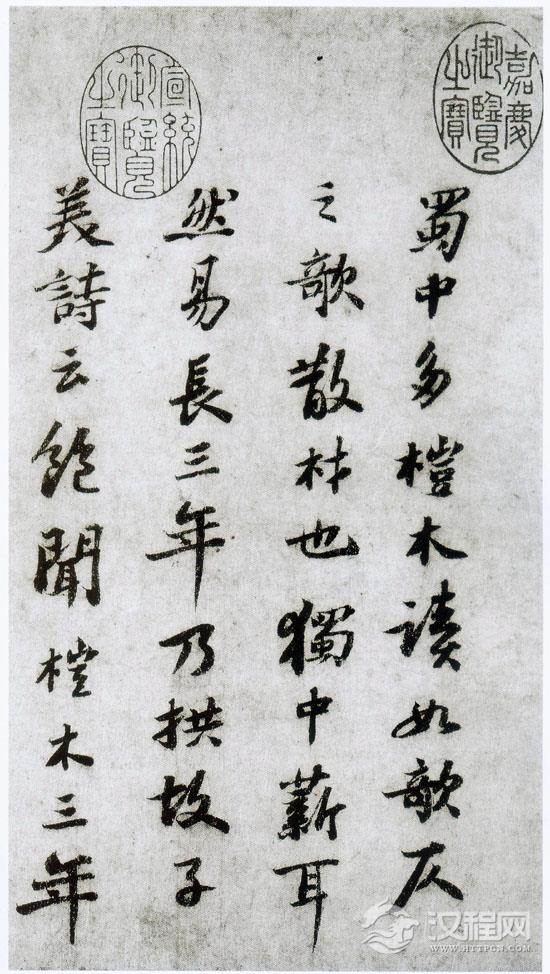 蜀中多榿木讀如欹仄
之欹散材也獨中薪耳
然易長三年乃拱故子
美詩云飽聞榿木三年
嘉慶御覽之寶
宣統御覽之寶
汉程网
WWW.HTTPCN.COM